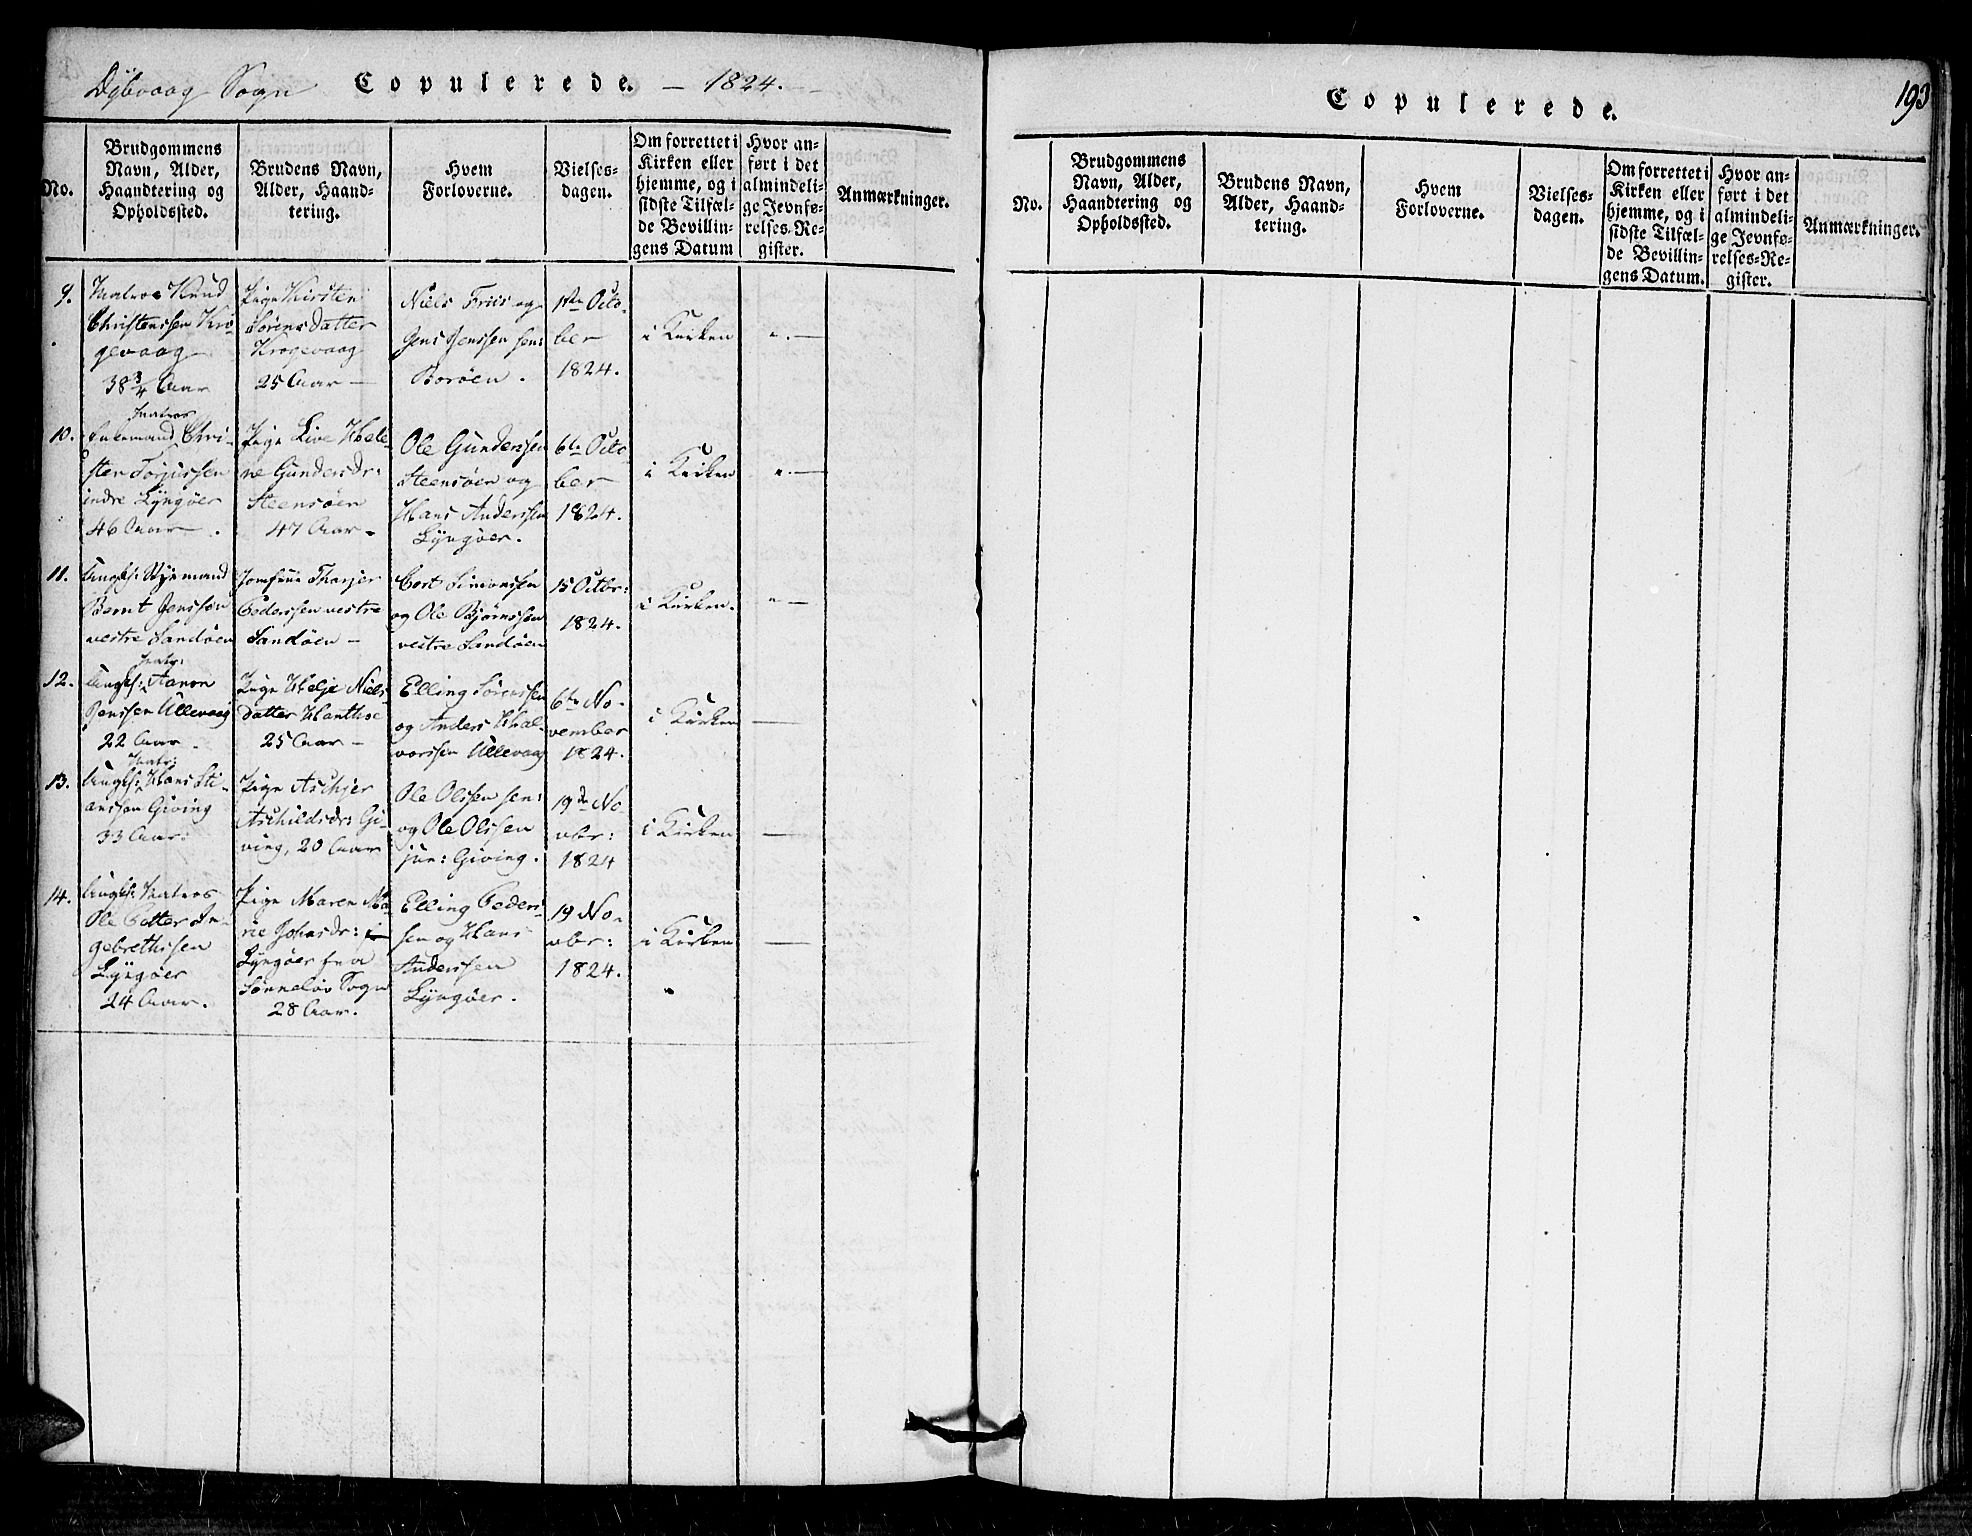 Dybvaag Sogn Copulerede. — 1824. —
No.
Brudgommens
Navn, Alder,
Haandtering og
Opholdssted.
Brudens Navn,
Alder, Haand-
tering.
Hvem
Forloverne.
Vielses-
dagen.
Om forrettet i
Kirken eller
hjemme, og i
sidste Tilfæl-
de Bevillin-
gens Datum
Hvor an-
ført i det
almindeli-
ge Jevnfø-
relses-Re-
gister.
Anmærkninger.
9.
Matros Knud
Christenssen Kro-
gevaag
38 3/4 Aar
Pige Kirsten
Sørensdatter
Krogevaag
25 Aar —
Niels Friis og
Jens Jenssen sen:
Borøen.
1ste Octo-
ber
1824.
i Kirken
10.
Matros
Enkemand Chri-
sten Torjussen
indre Lyngøer
46 Aar —.
Pige Live Hele-
ne Gundersdr:
Steensøen
47 Aar -
Ole Gunderssen
Steensøen og
Hans Anderssen
Lyngøer.
6te Octo-
ber
1824.
i Kirken
11.
Ungk: Styrmand
Bernt Jenssen
vestre Sandøen
Jomfrue Thorjer
Pederssen vestre
Sandøen —
Cort Simonssen
og Ole Bjørnssen
vestre Sandøen
15 Octbr:
1824.
i Kirken.
12.
Matr:
Ungk: Aanon
Jenssen Ullevaag
22 Aar.
Pige Helje Niels-
datter Hanthoe
25 Aar —
Elling Sørenssen
og Anders Hal-
vorssen Ullevaag
6te No-
vember
1824.
i Kirken
13.
Matr:
Ungk: Hans Sti-
anssen Giving
33 Aar:
Pige Aschjer
Aschildsdr: Gi-
ving, 20 Aar
Ole Olssen sen:
og Ole Olssen
jun: Giving.
19de No-
vbr:
1824
i Kirken
14.
Ungk: Matros
Ole Petter In-
gebrethssen
Lyngøer
24 Aar.
Pige Maren Ma-
rie Johnsdr:
Lyngøer fra
Sønneløv Sogn
28 Aar.
Elling Peders-
sen og Hans
Anderssen
Lyngøer.
19 No-
vbr:
1824.
i Kirken
193
Copulerede.
No.
Brudgommens
Navn, Alder,
Haandtering og
Opholdssted.
Brudens Navn,
Alder, Haand-
tering.
Hvem
Forloverne.
Vielses-
dagen.
Om forrettet i
Kirken eller
hjemme, og i
sidste Tilfæl-
de Bevillin-
gens Datum.
Hvor an-
ført i det
almindeli-
ge Jevnfø-
relses-Re-
gister.
Anmærkninger.